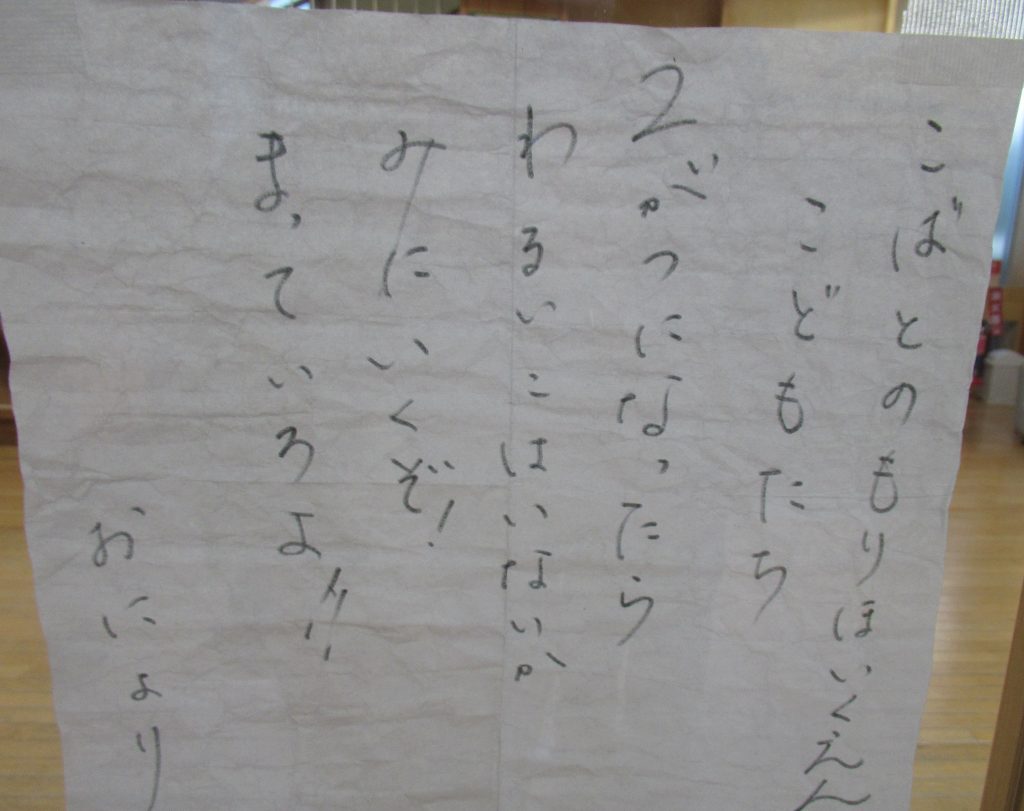 こばとのもりほいくえん
こどもたち
2がつになったら
わるいこはいないか
みにいくぞ!
まっていろよ!!
おにより